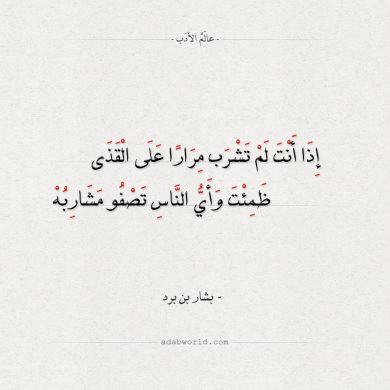 - عالَمُ الأدَب -
إِذَا أَنْتَ لَمْ تَشْرَب مِرَارًا عَلَى الْقَذَى
ظَمِئْتَ وَأَيُّ النَّاسِ تَصْفُو مَشَارِبُهْ
- بشار بن برد
adabworld.com